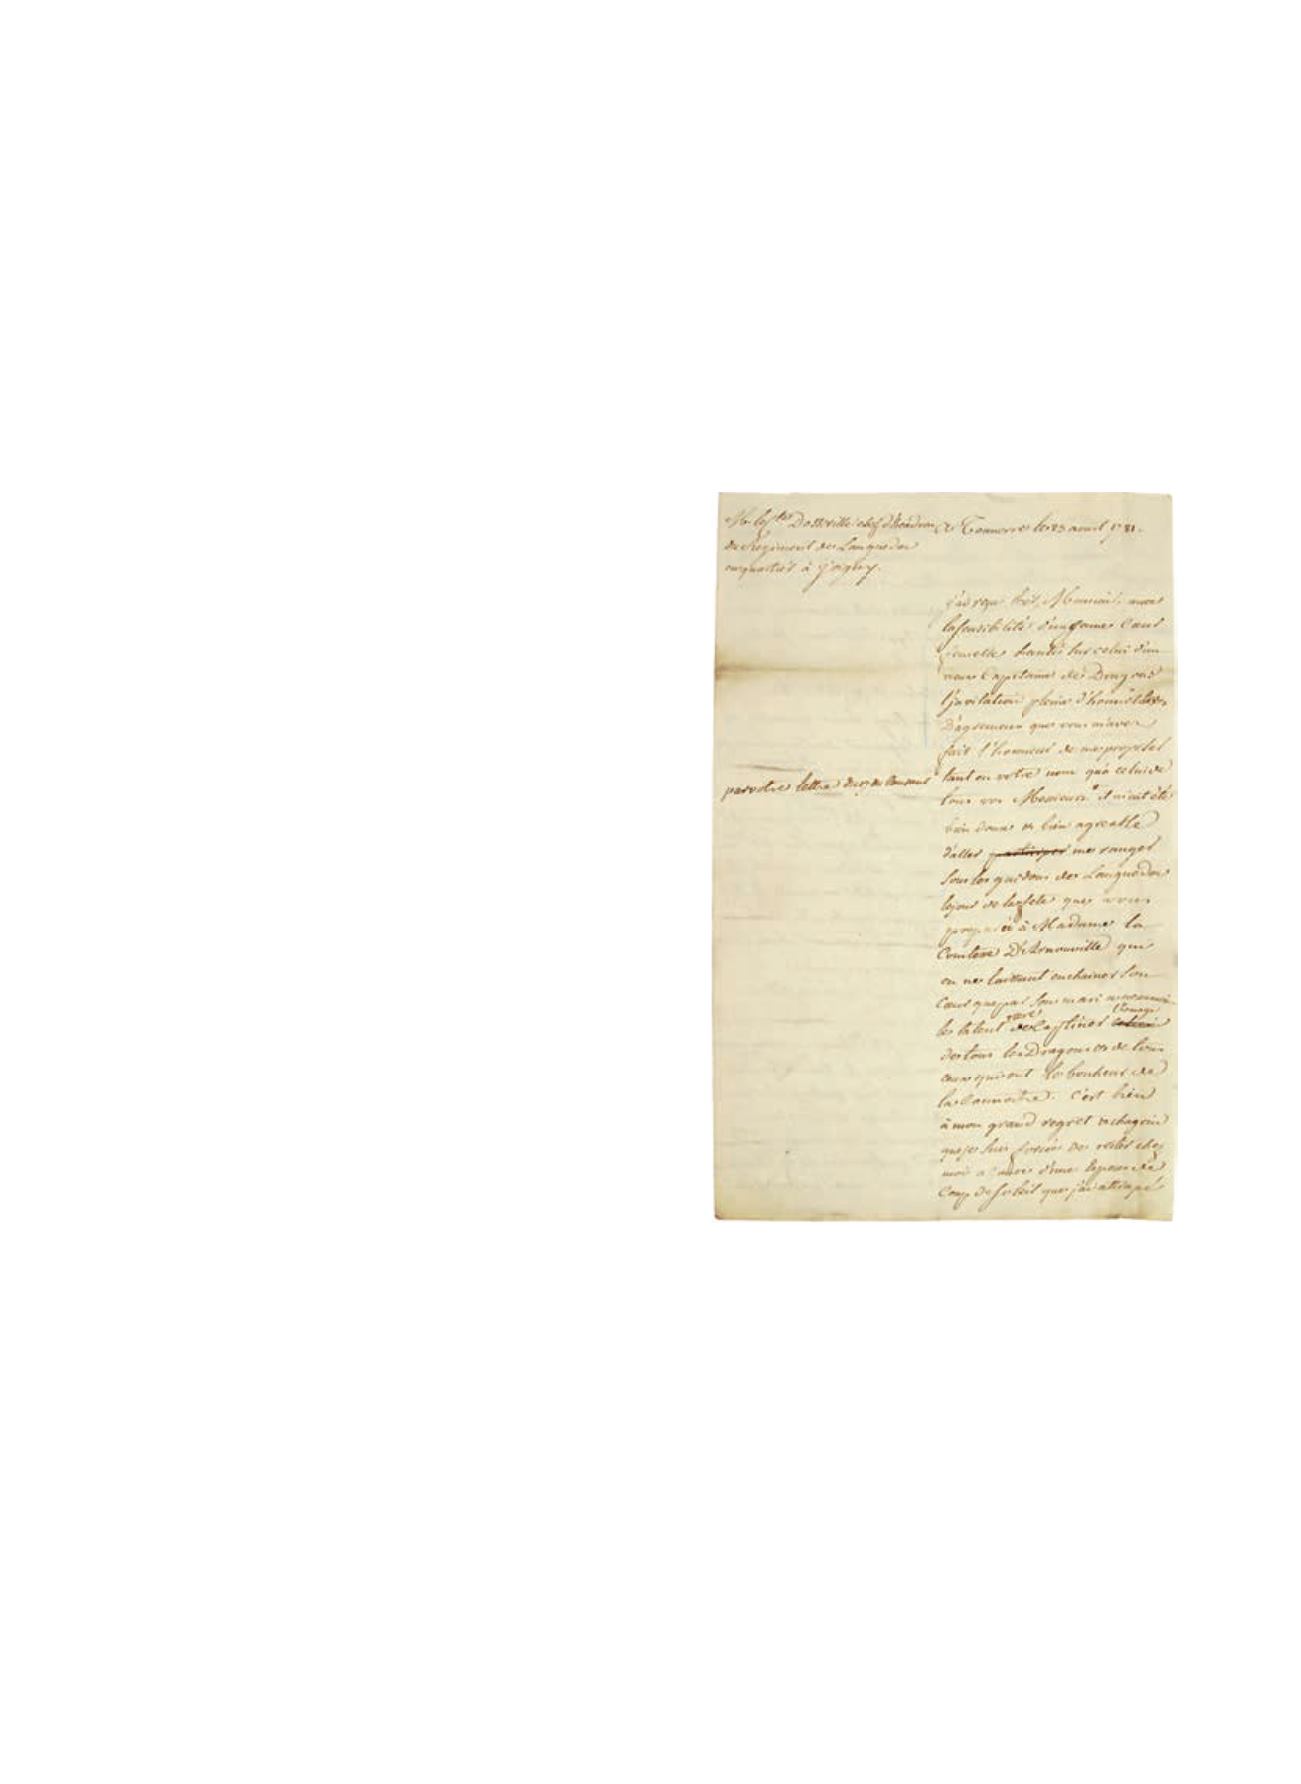 Dosseville chef d'Escadron à Tonnerre le 23 aoust 1781.
du Regiment de Languedoc
en quartier à Joigny.
j'ai reçu hier, Monsieur, avec
la sensibilité d'un
hantée sur celui d'un
vieux Capitaine de Dragons
l'invitation pleine d'honnêteté
D'agremens que vous m'avez
fait l'honneur de me proposer
tant en votre nom qu'à celui de
par votre lettre du
tous vos Messieurs il m'eut été
bien doux et bien agreable
d'aller participer me ranger
sous les guidons de Languedoc
le jour de la fete que vous
à Madame la
Comtesse D'Arnouville qui
en ne laissant enchainer son
cœur que par son mari
le talent rare de captiver l'hommage
de tous les Dragons et de tous
ceux qui ont le bonheur de
la connoitre. c'est bien
à mon grand regret et chagrin
que je suis forcé de rester chez
moi a cause d'une espece de
coup de soleil que j'ai attrapé